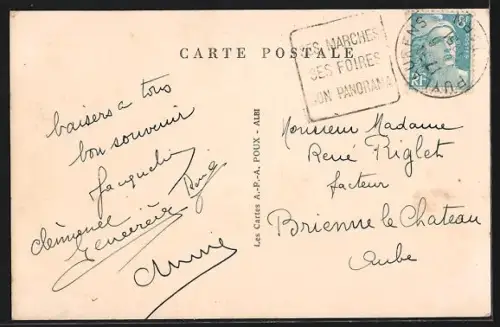 CARTE POSTALE
SES MARCHES
SES FOIRES
SON PANORAMA
RF
PUYLAURENS
baisers à tous
bon souvenir
Jacqueline
René
Clémence
Geneviève
Annie
Les Cartes A.-P.-A. POUX - ALBI
Monsieur Madame
René Riglet
facteur
Brienne le Chateau
Aube